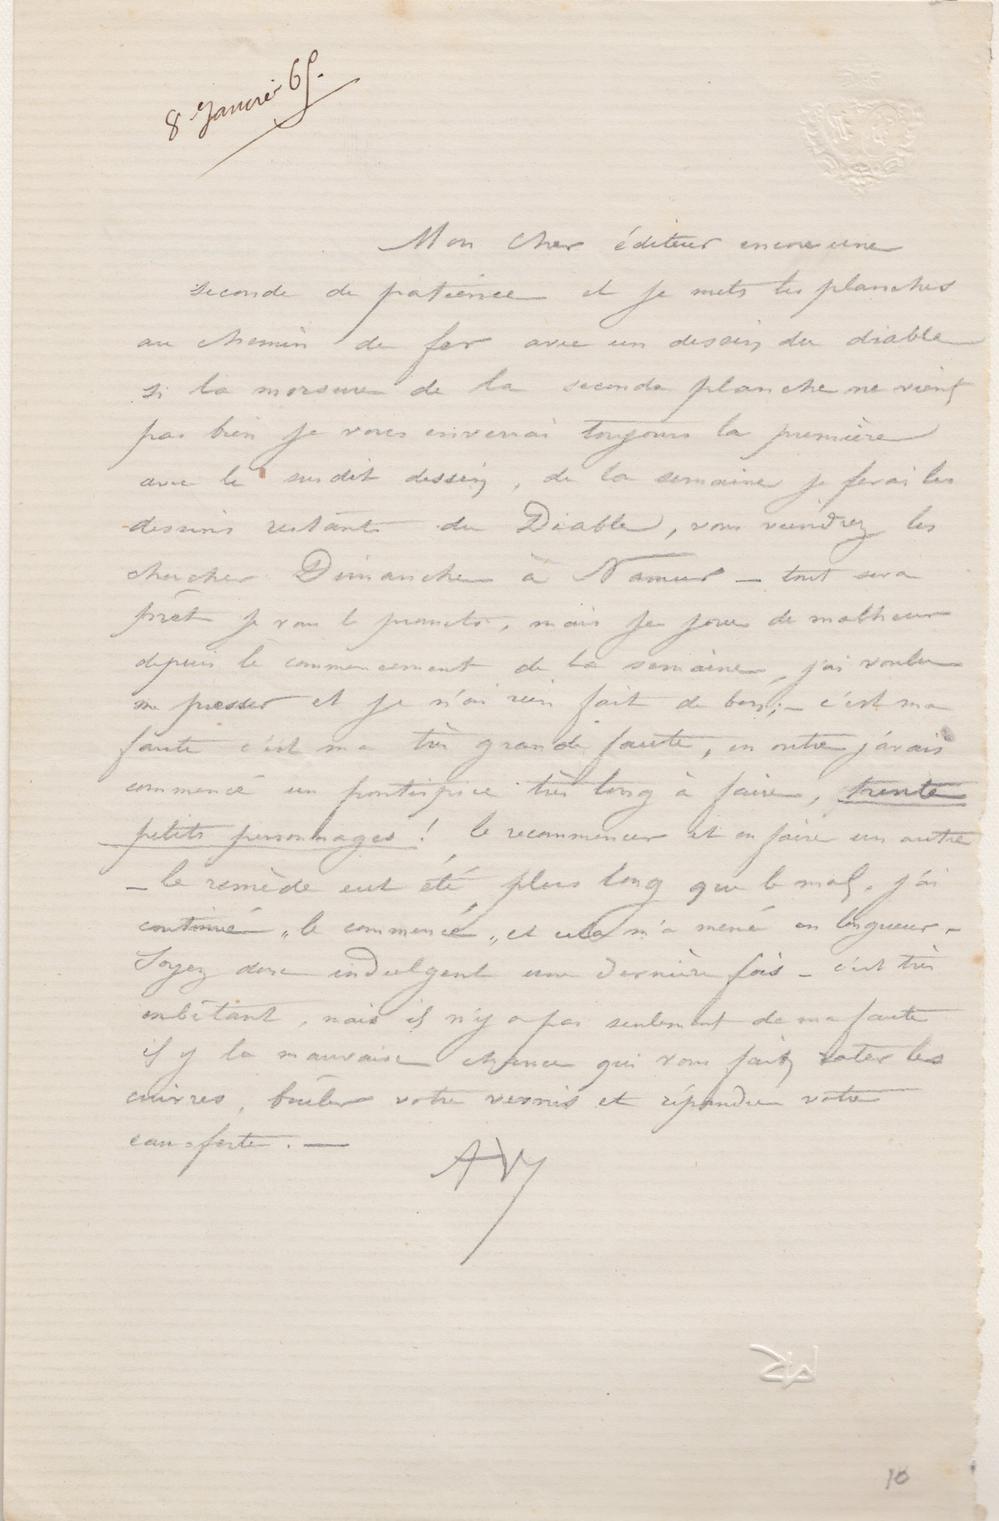 8 Janvier 65.
Mon cher éditeur encore une
seconde de patience et je mets les planches
au chemin de fer avec un dessin du diable
si la morsure de la seconde planche ne vient
pas bien je vous enverrai toujours la première
avec le susdit dessin, de la semaine je ferai les
dessins restants du Diable, vous viendrez les
chercher Dimanche à Namur – tout sera
prêt je vous le promets, mais je joue de malheur
depuis le commencement de la semaine, j'ai voulu
me presser et je n'ai rien fait de bon; – c'est ma
faute c'est ma très grande faute, en outre j'avais
commencé un frontispice très long à faire, trente
petits personnages ! le recommencer et en faire un autre
– le remède eut été plus long que le mal, j'ai
continué „ le commencé „ et cela m'a mené en longueur –
Soyez donc indulgent une dernière fois – c'est très
embêtant, mais il n'y a pas seulement de ma faute
il y la mauvaise chance qui vous fait rater les
cuivres, brûler votre vernis et répandre votre
eau-forte. —
10